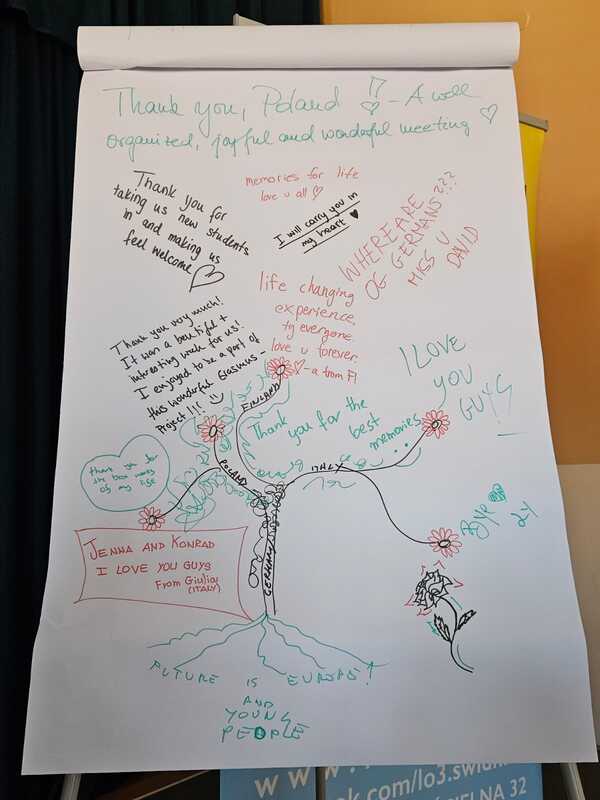 Thank you, Poland !! - A well
organized, joyful and wonderful meeting
Thank you for
taking us new students
in and making us
feel welcome
memories for life
love u all
I will carry you in
my heart
WHERE ARE
OG GERMANS???
MISS U
DAVID
life changing
experience,
ty everyone.
love u forever.
- a from FI
Thank you very much!
It was a beautiful +
interesting week for us!
I enjoyed to be a part of
this wonderful Erasmus-
Project!!!
I LOVE
YOU
GUYS!
FINLAND
Thank you for the
best
memories...
POLAND
ITALY
GERMANY
thank you for
the best week
of my life
JENNA AND KONRAD
I LOVE YOU GUYS
From Giulia
(ITALY)
FUTURE IS EUROPE!
AND
YOUNG
PEOPLE
www.
ok.com/lo3.swid
ELNA 32